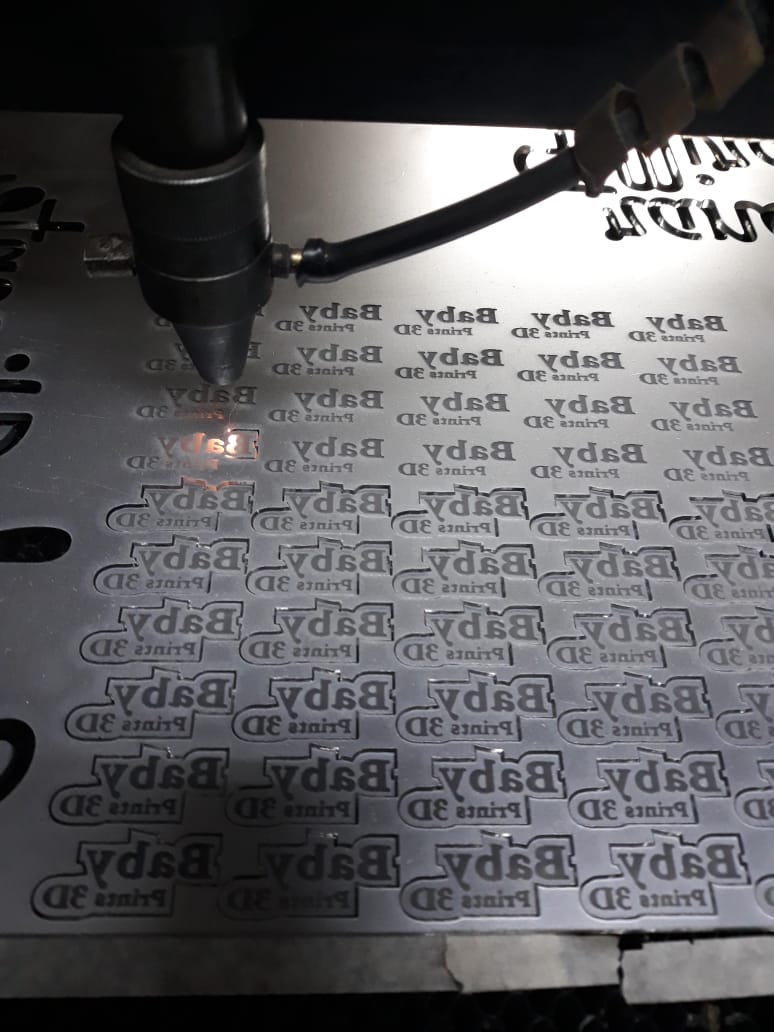 Baby Baby Baby Baby
Prints 3D Prints 3D Prints 3D Prints 3D
Baby Baby Baby Baby
Prints 3D Prints 3D Prints 3D Prints 3D
Baby Baby Baby Baby Baby
Prints 3D Prints 3D Prints 3D Prints 3D Prints 3D
Baby Baby Baby Baby Baby
Prints 3D Prints 3D Prints 3D Prints 3D Prints 3D
Baby Baby Baby Baby Baby
Prints 3D Prints 3D Prints 3D Prints 3D Prints 3D
Baby Baby Baby Baby
Prints 3D Prints 3D Prints 3D Prints 3D
Baby Baby Baby Baby
Prints 3D Prints 3D Prints 3D Prints 3D
Baby Baby Baby Baby
Prints 3D Prints 3D Prints 3D Prints 3D
Baby Baby Baby Baby
Prints 3D Prints 3D Prints 3D Prints 3D
Baby Baby Baby Baby
Prints 3D Prints 3D Prints 3D Prints 3D